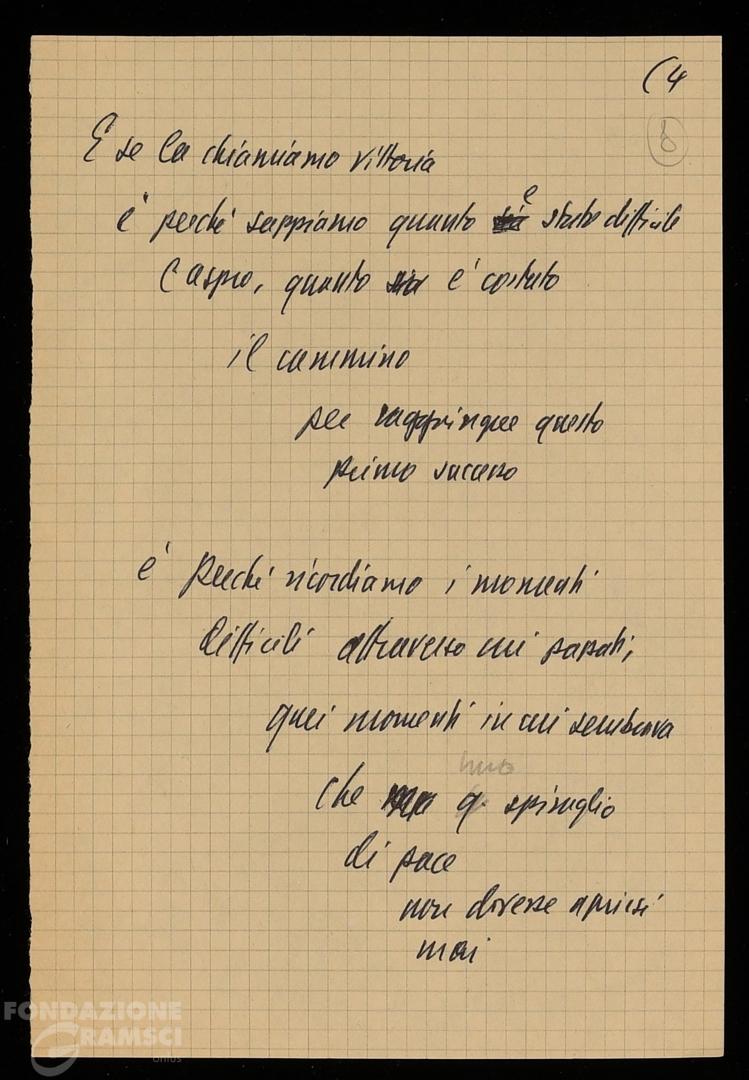 (4
8
E se la chiamiamo vittoria
è perché sappiamo quanto è stato difficile
e aspro, quanto è costato
il cammino
per raggiungere questo
primo successo
è perché ricordiamo i momenti
difficili attraverso cui passati,
quei momenti in cui sembrava
che q. spiraglio
di pace
non dovesse aprirsi
mai
FONDAZIONE
GRAMSCI
onlus